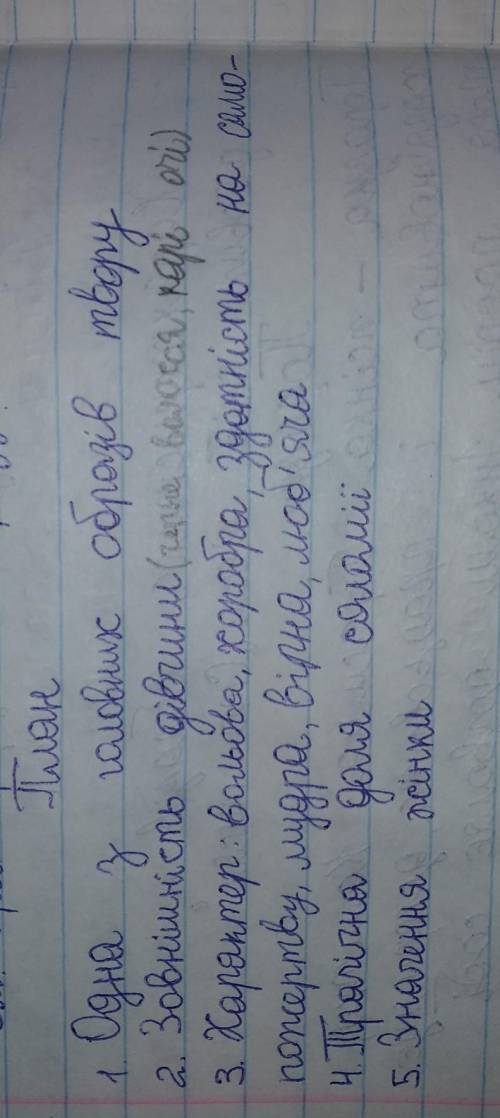 План
1. Одна з головних образів твору
2. Зовнішність дівчини (чорне волосся, карі очі)
3. Характер: вольова, хоробра, здатність на само-
пожертву, мудра, вірна, люб'яча
4. Трагічна доля соломії
5. Значення жінки